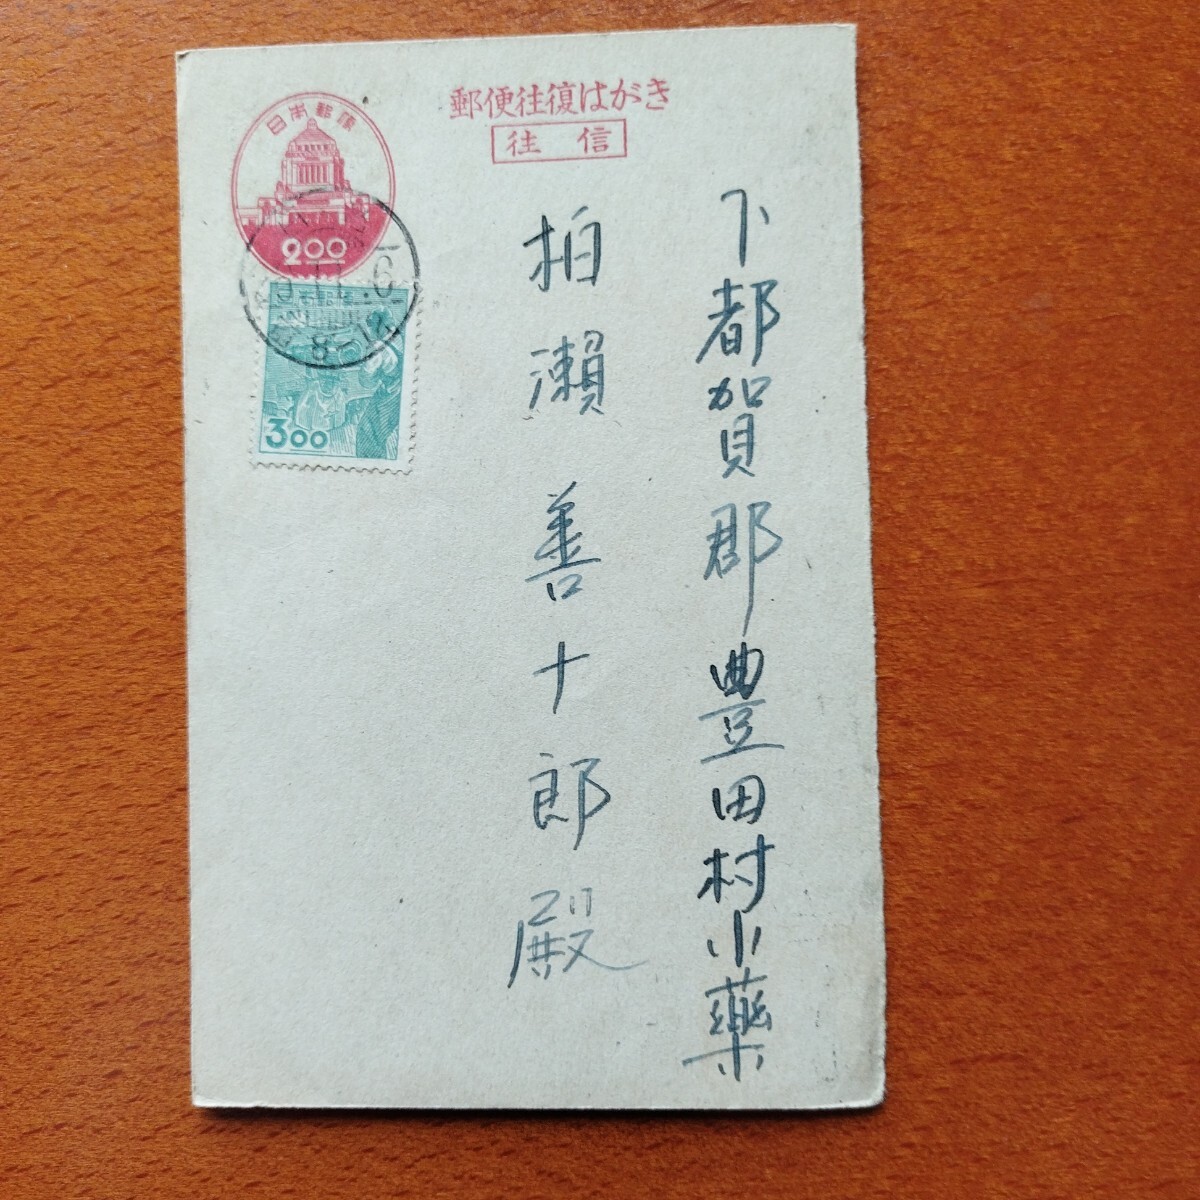 郵便往復はがき
往信
日本郵便
2.00
3.00
8-12
下都賀郡豊田村小薬
柏瀬善十郎殿